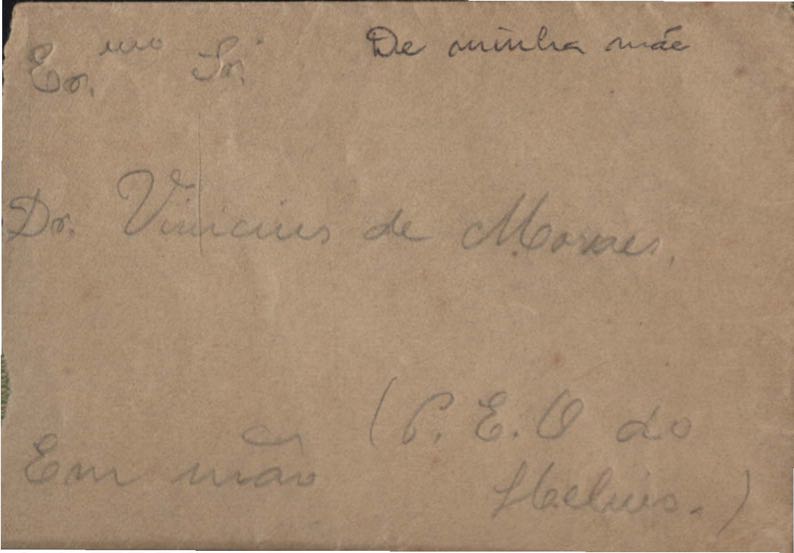 Ex.mo Sr. De minha mãe
Dr. Vinicius de Moraes.
Em mão (P. E. O do
Helius.)